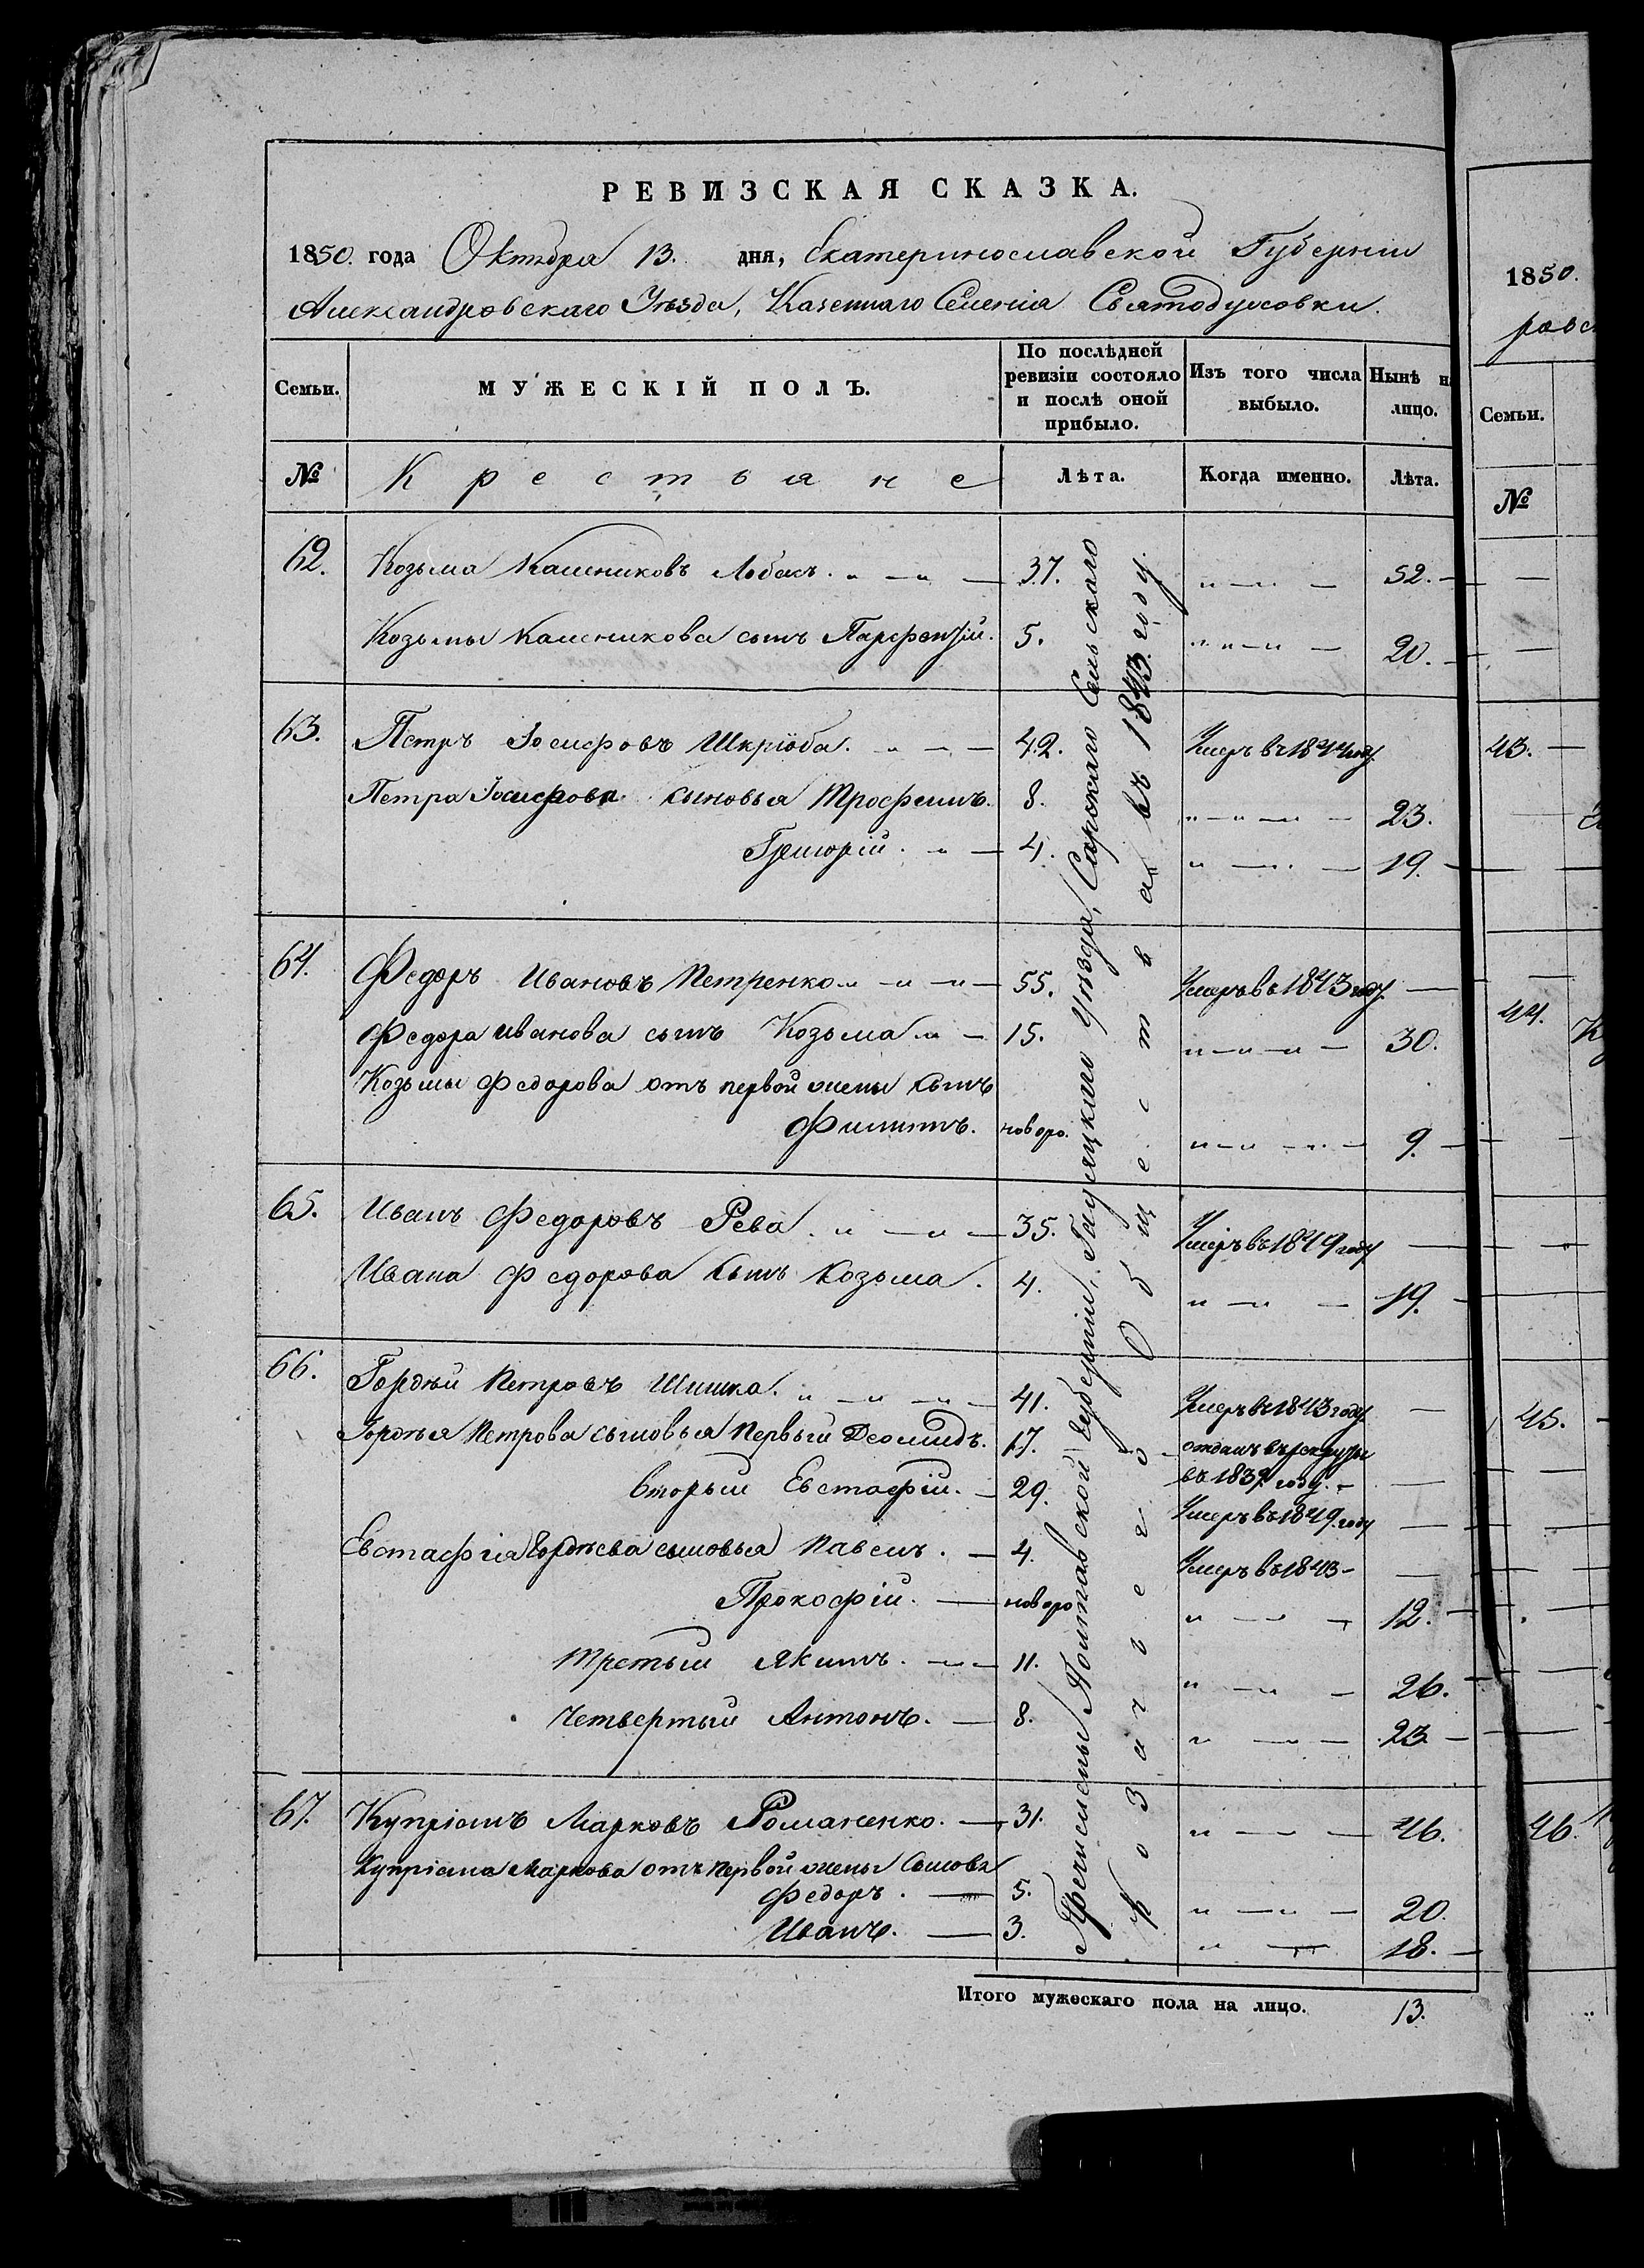 РЕВИЗСКАЯ СКАЗКА.
1850. года Октября 13. дня, Екатеринославской Губерніи
Александровскаго Уѣзда, Казеннаго Селенія Святодуховки.
Семьи. МУЖЕСКІЙ ПОЛЪ. По послѣдней ревизіи состояло и послѣ оной прибыло. Изъ того числа выбыло. Нынѣ н лицо.
№ Крестьяне Лѣта. Когда именно. Лѣта.
62. Козьма Калениковъ Лобасъ. 37. 52.
Козьмы Каленикова сынъ Парфентій. 5. 20.
63. Петръ Іосифовъ Шкріоба. 42. Умеръ въ 1844 году
Петра Іосифова сыновья Трофимъ. 8. 23.
Григорій. 4. 19.
64. Федоръ Ивановъ Петренко 55. Умеръ въ 1843 году.
Федора Иванова сынъ Козьма 15. 30.
Козьмы Федорова отъ первой жены сынъ
Филипъ. новоро. 9.
65. Иванъ Федоровъ Рева. 35. Умеръ въ 1849 году
Ивана Федорова сынъ Козьма. 4. 19.
66. Гордѣй Петровъ Шишка. 41. Умеръ въ 1843 году.
Гордѣя Петрова сыновья Первый Деомидъ. 17. отданъ въ рекруты
въ 1839 году.
Вторый Евстафій. 29. Умеръ въ 1849 году
Евстафія Гордѣева сыновья Павелъ. 4. Умеръ въ 1843
Прокофій. новоро 12.
Третый Якимъ. 11. 26.
Четвертый Антонъ. 8. 23
67. Купріянъ Марковъ Романенко. 31. 46.
Купріяна Маркова отъ первой жены Сынова
Федоръ. 5. 20.
Иванъ. 3. 18.
Причислены Полтавской Губерніи, Гадяцкаго Уѣзда, Сарскаго Сельскаго
Общества въ 1843. году.
Итого мужескаго пола на лицо. 13.
1850.
Семьи.
№
43.
44.
45.
46.